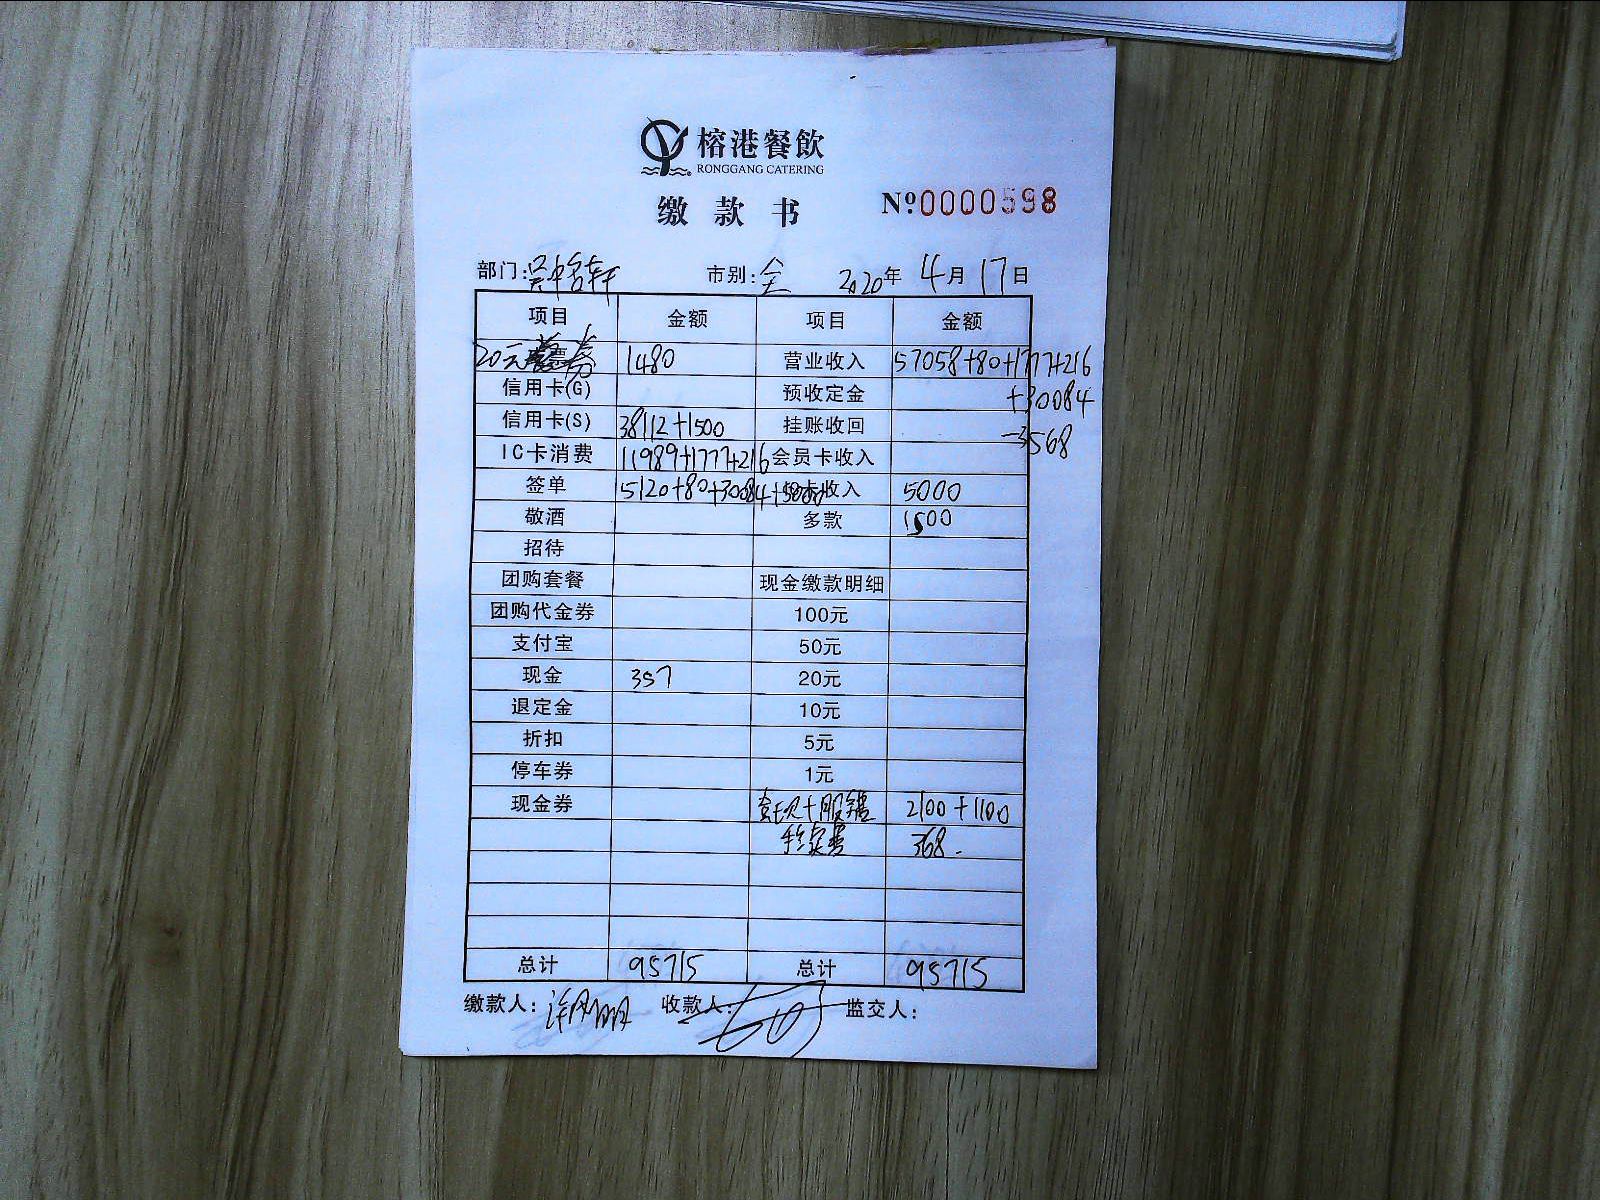 榕港餐飲
RONGGANG CATERING
缴款书 Nº0000598
部门: 市别:全 2020年4月17日
项目 金额 项目 金额
20元 券 1480 营业收入 57058+80+1777+216
信用卡(G) 预收定金 +30084
信用卡(S) 38112+1500 挂账收回 -3568
IC卡消费 11989+1777+216 会员卡收入
签单 5120+80+30084+5000 卡收入 5000
敬酒 多款 1500
招待
团购套餐 现金缴款明细
团购代金券 100元
支付宝 50元
现金 357 20元
退定金 10元
折扣 5元
停车券 1元
现金券 2100+1100
手续费 368.
总计 95715 总计 95715
缴款人: 收款人: 监交人: